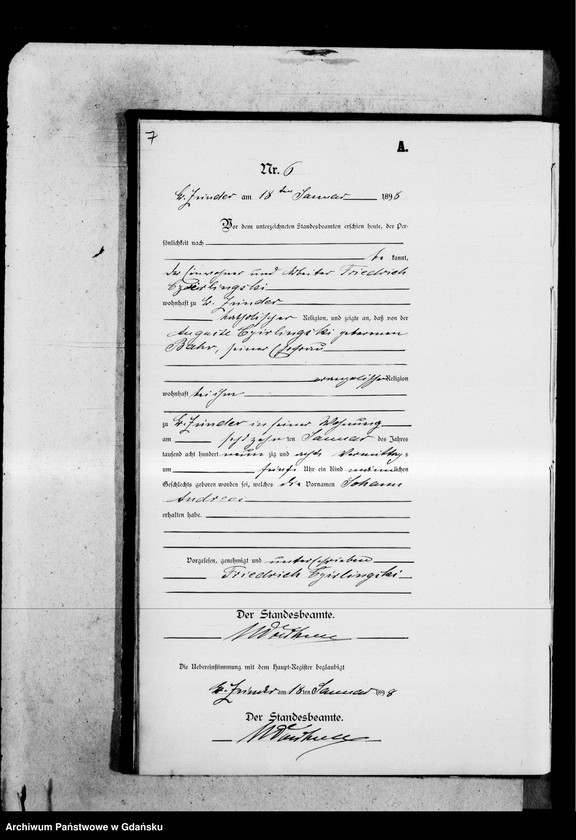 7
A.
Nr. 6
Gr. Zünder am 18 ten Januar 1898
Vor dem unterzeichneten Standesbeamten erschien heute, der Per-
sönlichkeit nach
be kannt,
der Einwohner und Arbeiter Friedrich
Czirlingski
wohnhaft zu Gr. Zünder
katholischer Religion, und zeigte an, daß von der
Auguste Czirlingski geborenen
Bahr, seiner Ehefrau
evangelischer Religion
wohnhaft bei ihm
zu Gr. Zünder in seiner Wohnung
am sechzehn ten Januar des Jahres
tausend acht hundert neun zig und acht Vormittags
um fünf Uhr ein Kind männlichen
Geschlechts geboren worden sei, welches die Vornamen Johann
Andreas
erhalten habe.
Vorgelesen, genehmigt und unterschrieben
Friedrich Czirlingski
Der Standesbeamte.
Die Uebereinstimmung mit dem Haupt-Register beglaubigt
Gr. Zünder am 18 ten Januar 1898
Der Standesbeamte.
Archiwum Państwowe w Gdańsku